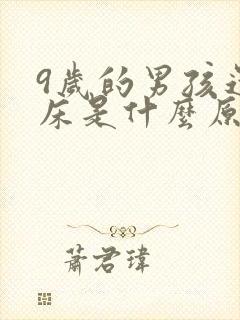 9歲的男孩
床是什麼原
蕭君瑋